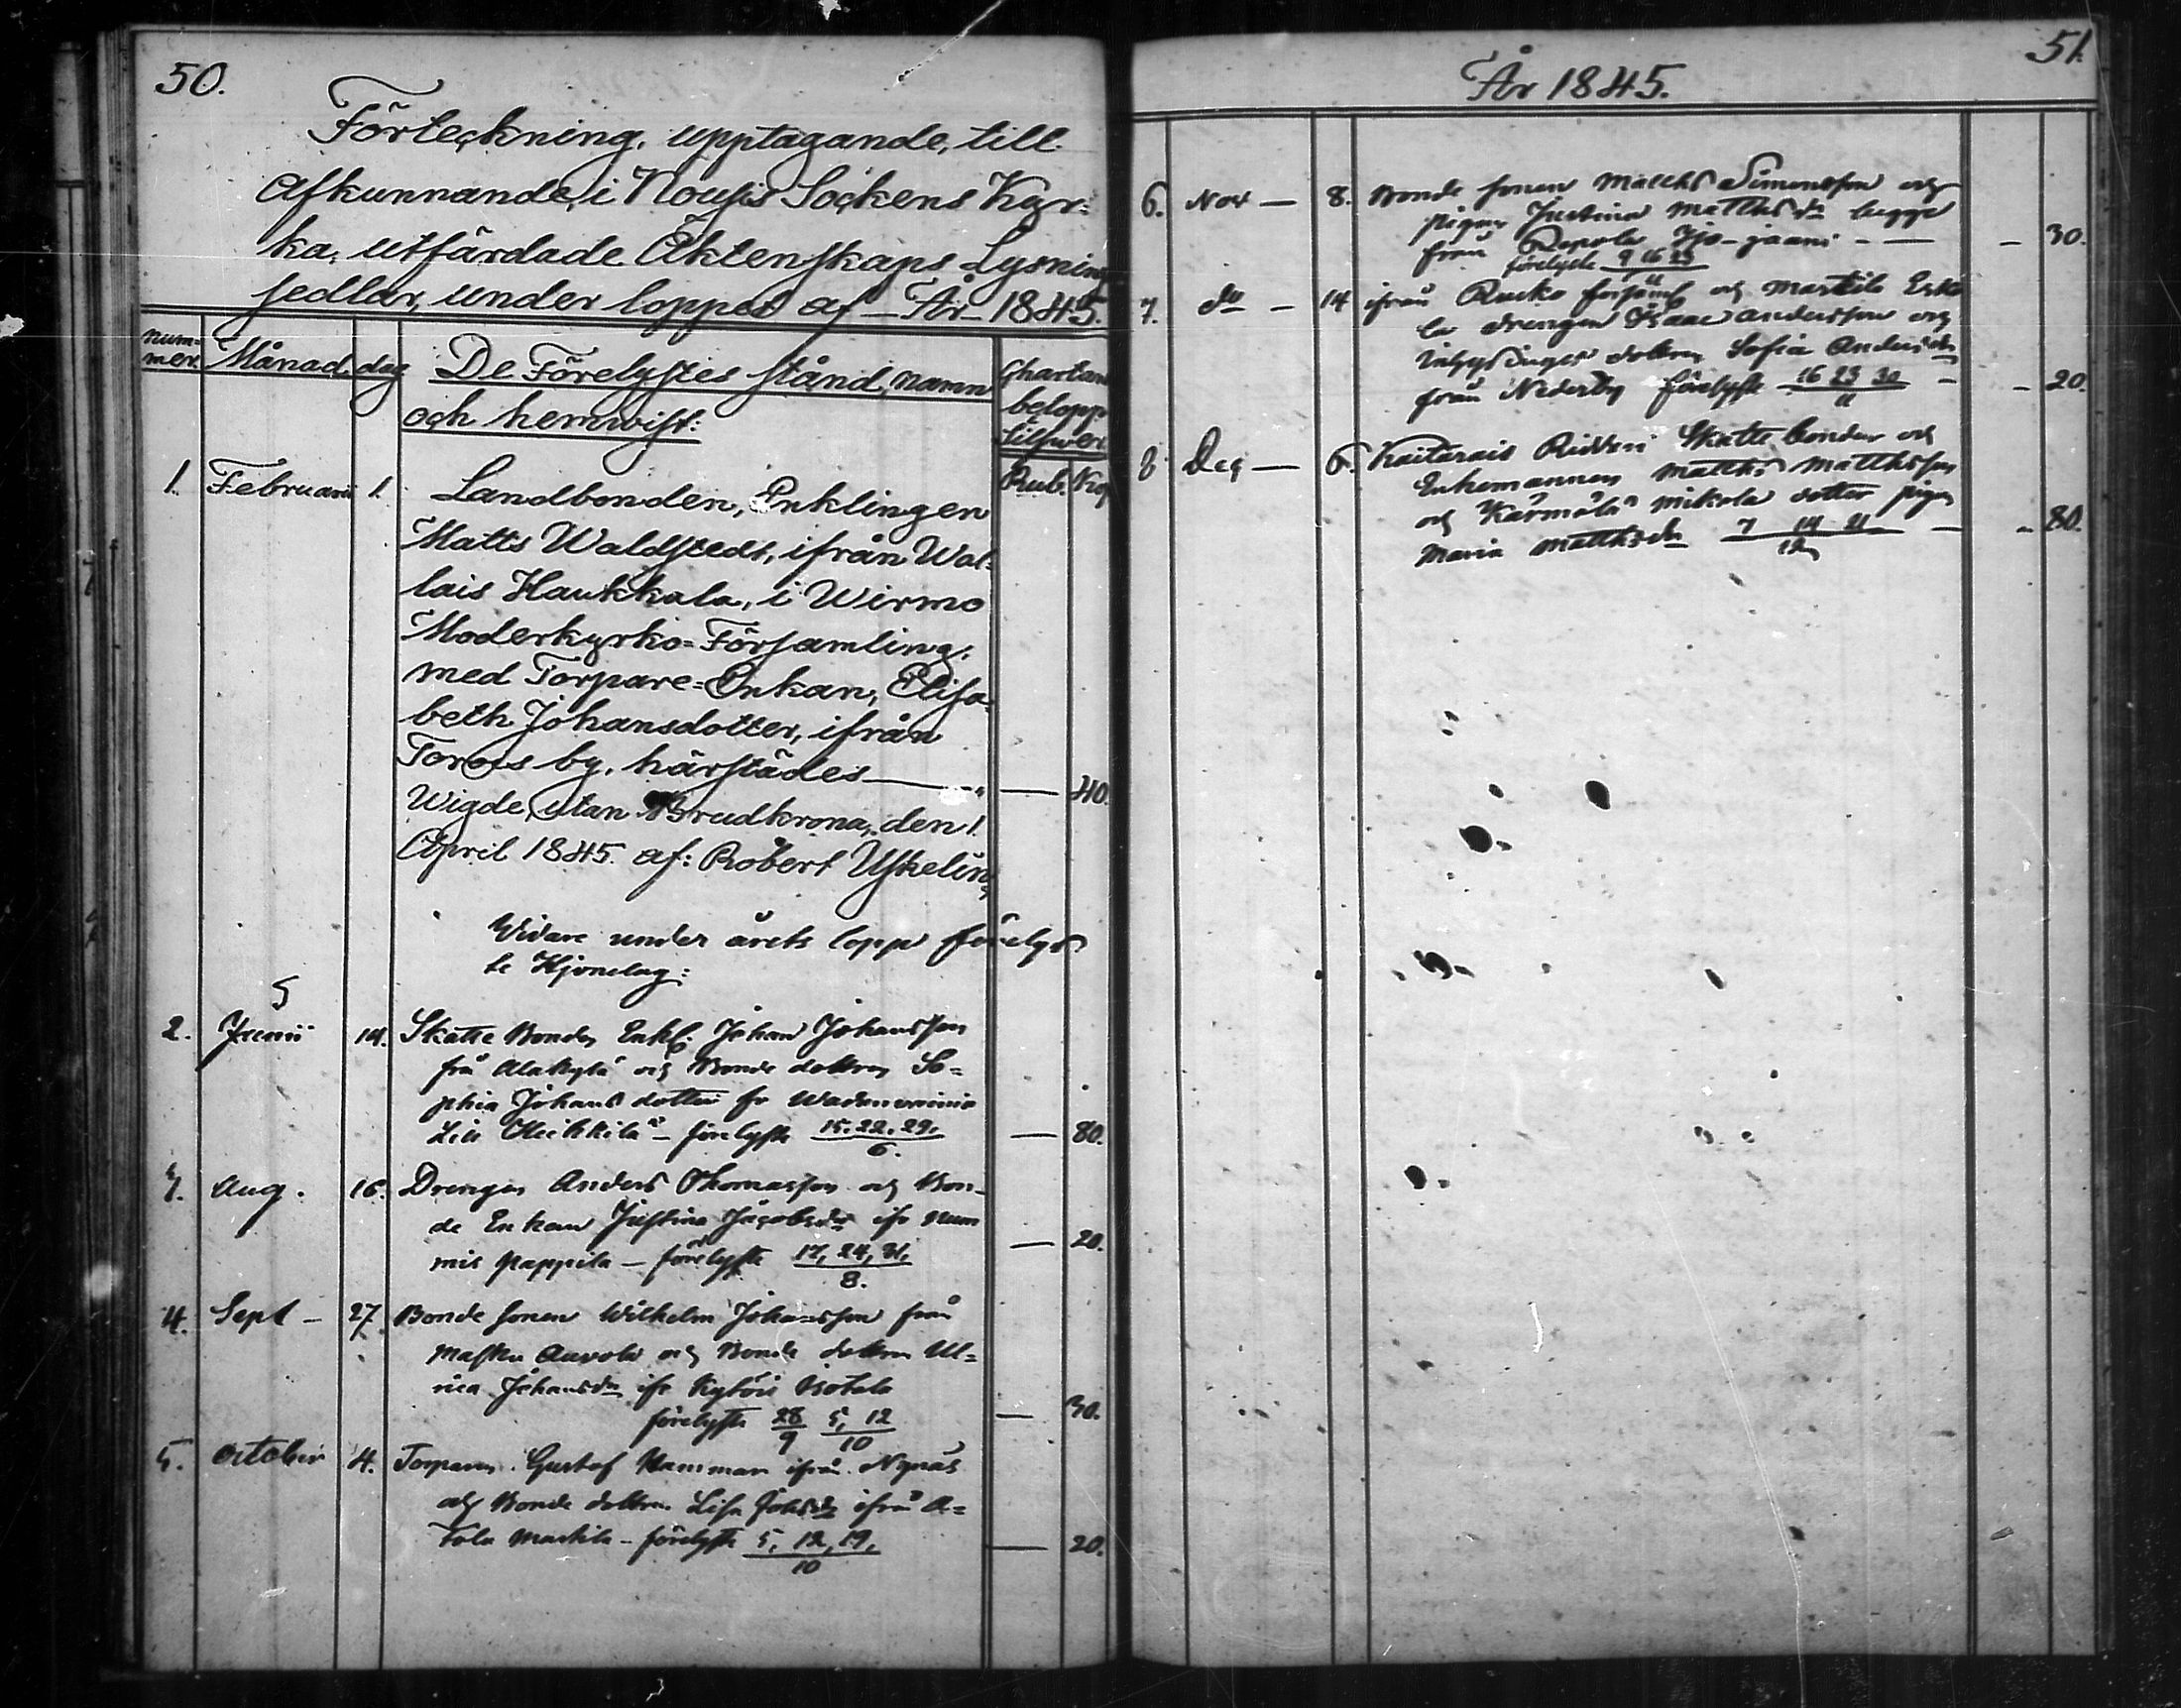 50.
Förteckning, upptagande, till
Afkunnande, i Nousis Sockens Kyr-
ka, utfärdade Äktenskaps Lysning
sedlar, under loppet af – År – 1845.
num-
mer. Månad dag De Förelystes stånd, namn Chartæ
och hemwist: belopp
silfwer
Rub. Kop
1. Februarii 1. Landbonden, Enklingen
Matts Waldstedt, ifrån Wal-
lais Haukkala, i Wirmo
Moderkyrko-Församling,
med Torpare-Enkan, Elisa-
beth Johansdotter, ifrån
Torois by, härstädes — 40.
Wigde, utan Brudkrona, den 1.
April 1845. af: Robert Uskelin,
Widare under årets lopp förelys
te Hjonelag:
2. Junii 14. Skatte Bonden Enkl. Johan Johansson
frå Alakylä och Bonde dottren So-
phia Johans dotter fr
Heikkilä – förelyste 15. 22. 29.
6. — 80.
3. Aug. 16. Drengen Anders Thomasson och Bon-
de Enkan Justina Jacobsdr ifr Num
mis Pappila – förelyste 17, 24, 31,
8. — 20.
4. Sept – 27. Bonde sonen Wilhelm Johansson från
Masku och Bonde dottren Ul-
rica Johansdr ifr Isotalo
förelyste 28 5, 12
9 10 — 30.
5. October 4. Torparen Gustaf Hamman ifrån Nynäs
och Bonde dottren Lisa Johsdr ifrån A-
tola Markila – förelyste 5, 12, 19,
10 — 20.
51.
År 1845.
6. Nov — 8. Bonde sonen Matths Simonsson och
pigan Justina Matthsdr begge
från Repola Yjo-jaani – — – 30.
förelyste 9 16 23
11
7. do – 14 ifrån Rusko församl och Markila
drengen Isaac Andersson och
dottren Sofia Andersdr
från Nederby förelyste 16 23 30 – – 20.
11
8 Dec — 6. Kaitarais Ridderi Skatte bonden och
Enkemannen Matths Matthsson
och Kärmälä Mikola dotter pigan
Maria Matthsdr 7 14 21 – – 80.
12